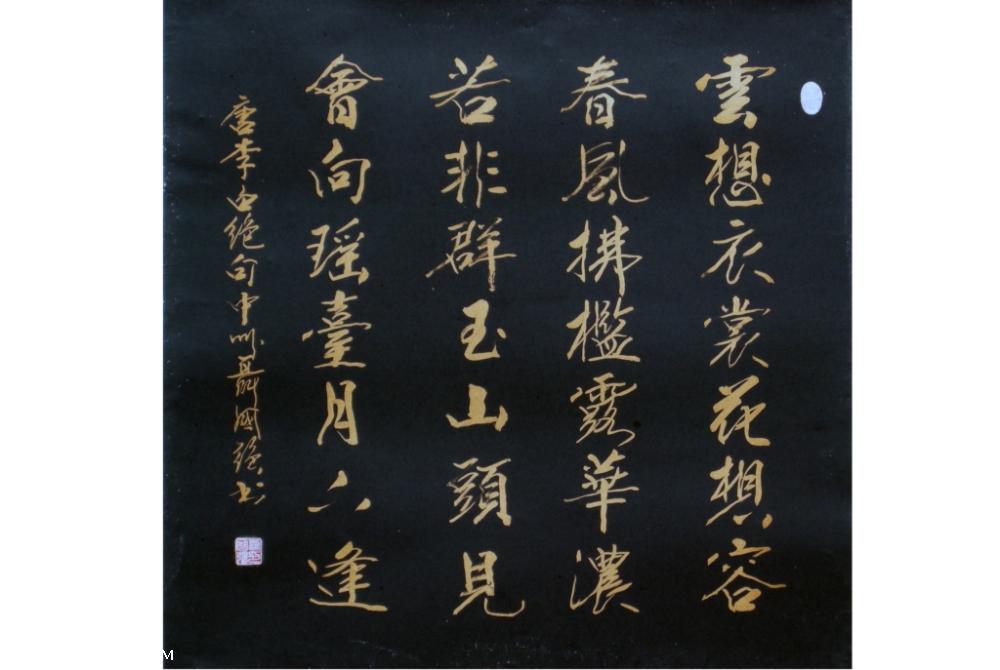 雲想衣裳花想容
春風拂檻露華濃
若非群玉山頭見
會向瑶臺月下逢
唐李白絶句中州聶國強书
M